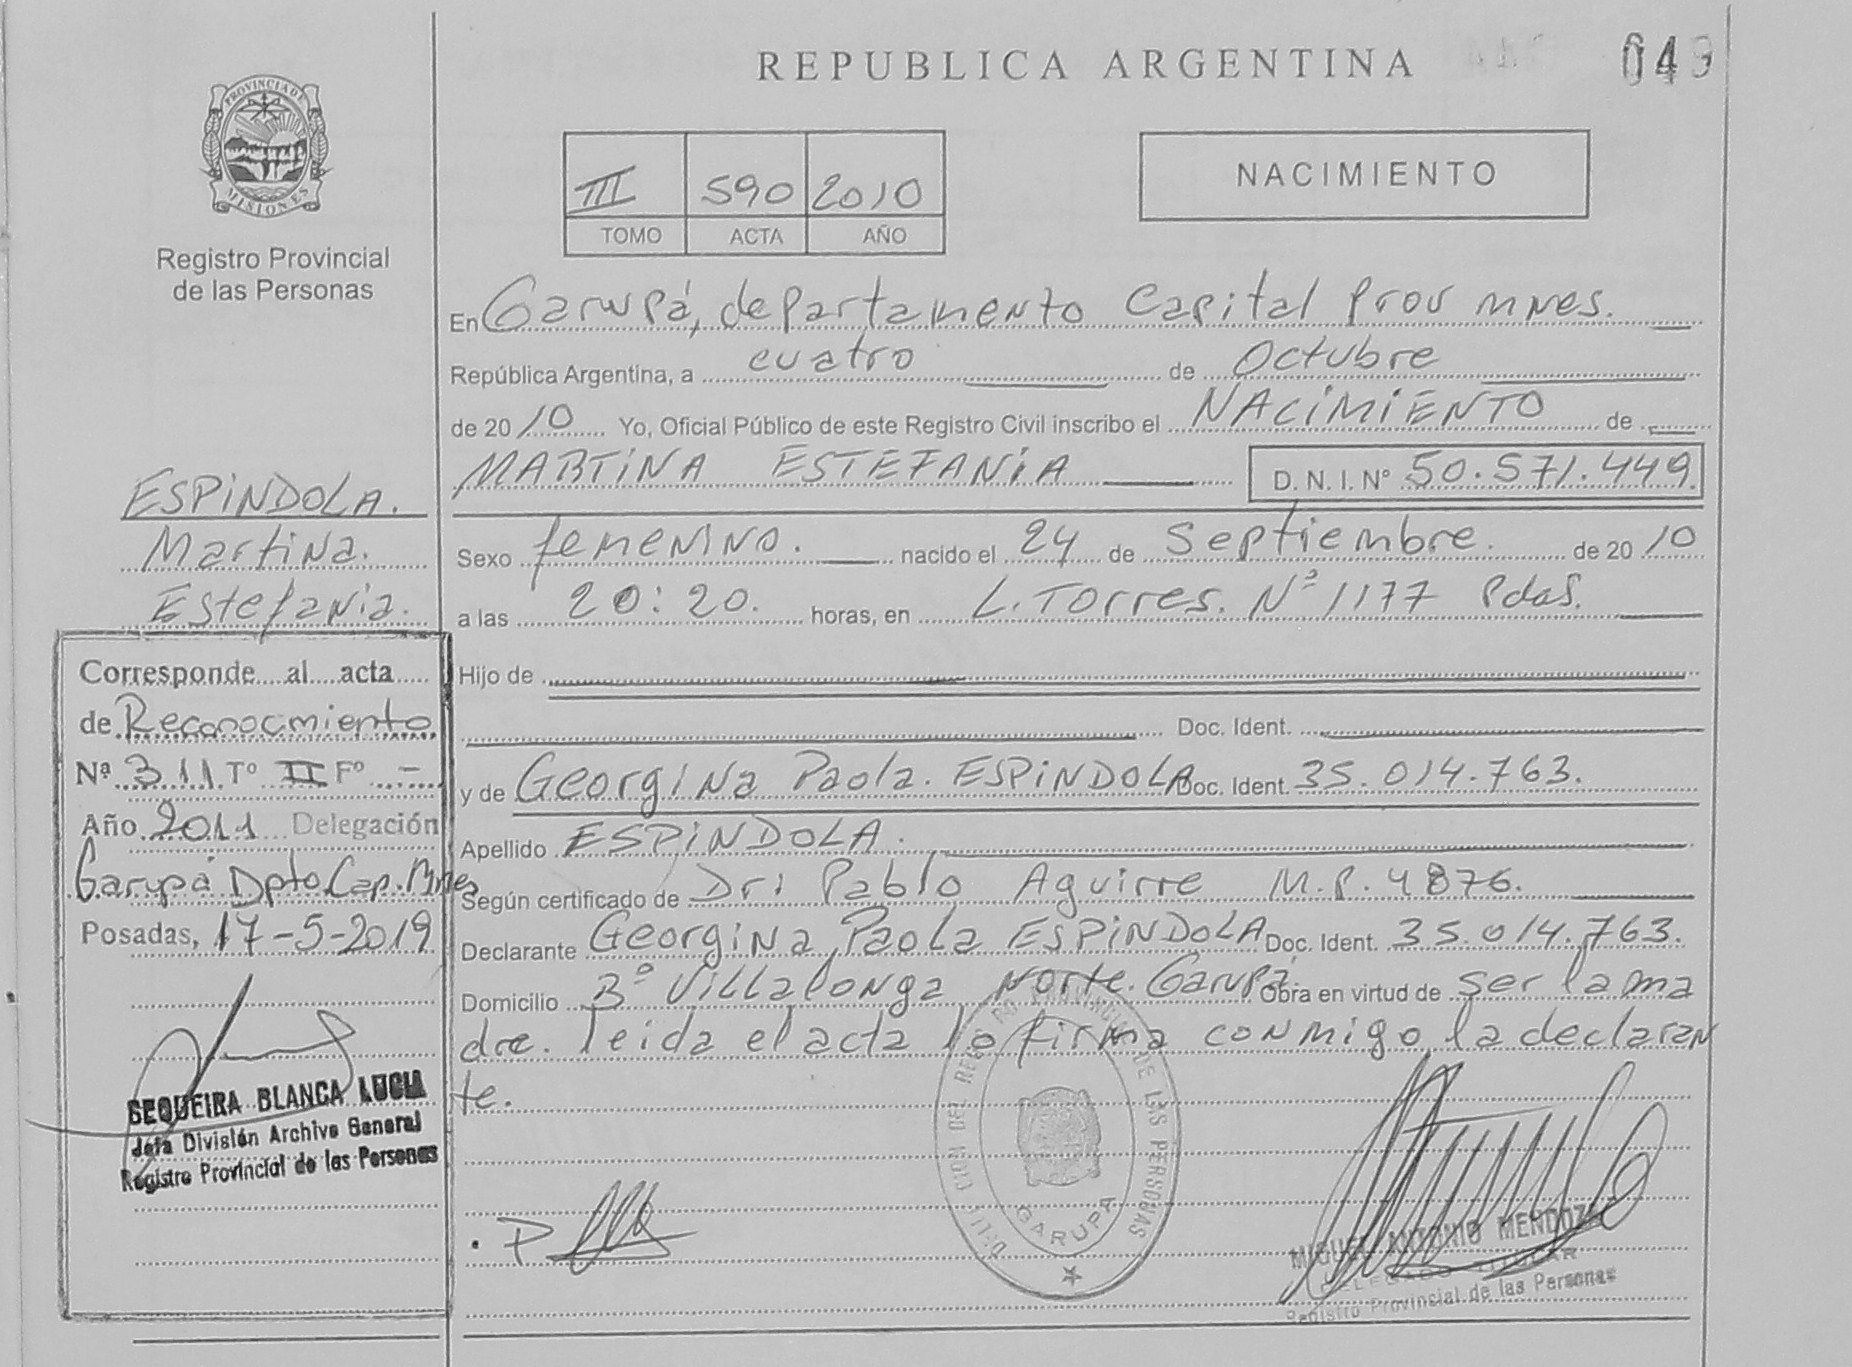 REPUBLICA ARGENTINA
049
PROVINCIA DE MISIONES
Registro Provincial
de las Personas
III 590 2010
TOMO ACTA AÑO
NACIMIENTO
En Garupá, departamento Capital Prov mnes.
República Argentina, a cuatro de Octubre
de 2010 Yo, Oficial Público de este Registro Civil inscribo el NACIMIENTO de
MARTINA ESTEFANIA D. N. I. Nº 50.571.449
Sexo femenino. nacido el 24 de Septiembre. de 2010
a las 20:20. horas, en L. Torres. Nº 1177 Pdas.
Hijo de
Doc. Ident.
y de Georgina Paola. ESPINDOLA Doc. Ident. 35.014.763.
Apellido ESPINDOLA.
Según certificado de Dr: Pablo Aguirre M.P. 4876.
Declarante Georgina Paola ESPINDOLA Doc. Ident. 35.014.763.
Domicilio Bº Villalonga Norte. Garupá. Obra en virtud de ser la ma
dre. leida el acta la firma conmigo la declaran
te.
ESPINDOLA.
Martina.
Estefania.
Corresponde al acta
de Reconocmiento
Nª 311 Tº II Fº -
Año 2011 Delegación
Garupá Dpto. Cap. Mnes
Posadas, 17-5-2019
SEQUEIRA BLANCA LUCIA
Jefa División Archivo General
Registro Provincial de las Personas
DE LAS PERSONAS
GARUPA
MIGUEL ANTONIO MENDOZA
DELEGADO TITULAR
Registro Provincial de las Personas